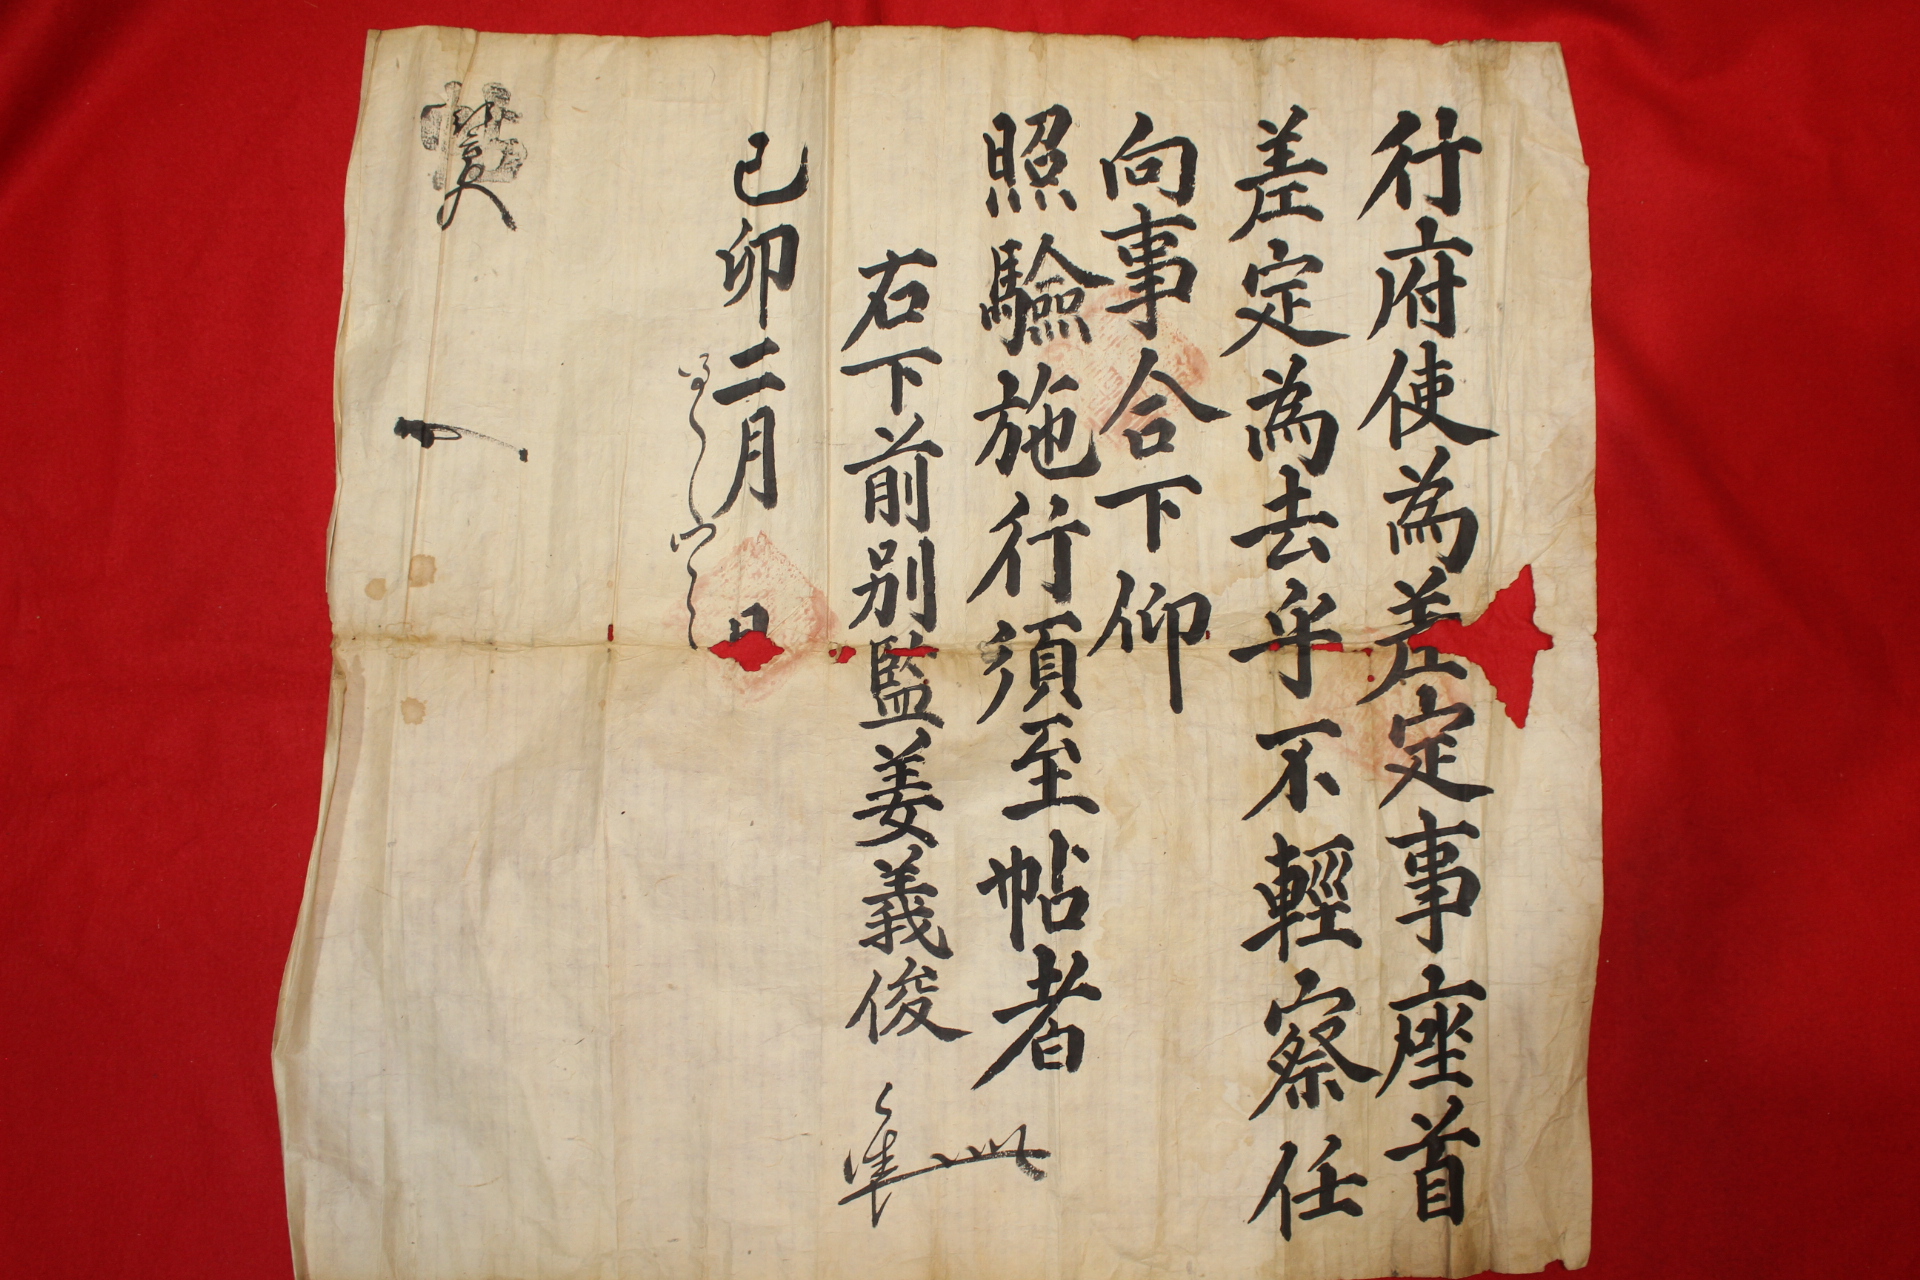 行府使為差定事座首
差定為去乎不輕察任
向事合下仰
照驗施行須至帖者
右下前別監姜義俊 準此
己卯二月 日